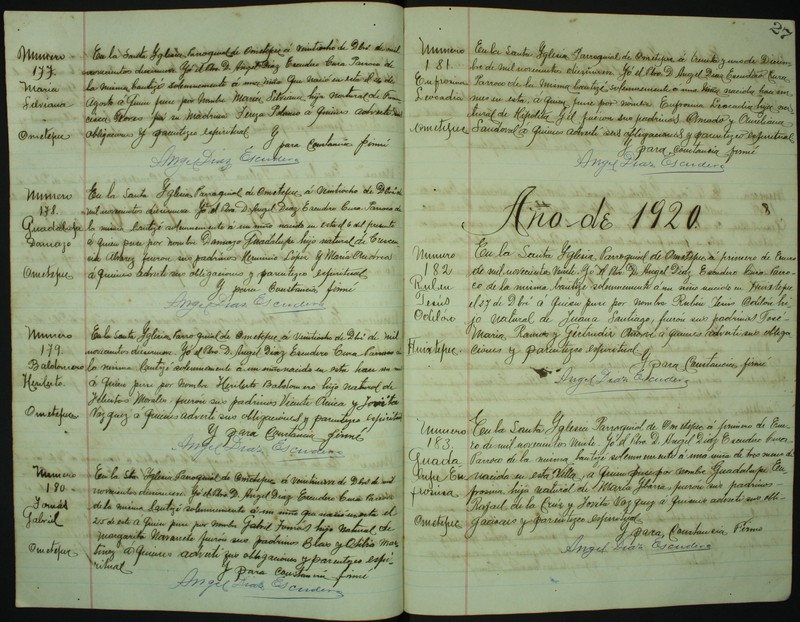 Numero
177.
Maria
Silviana
Ometepec
En la Santa Iglesia Parroquial de Ometepec á veintiocho de Dbre de mil
novecientos diesinueve. Yó el Pbro. D. Angel Diaz Escudero Cura Parroco de
la misma bautizé solemnemente á una niña que nació en este
Agosto á Quien puse por nombre Maria Silviana, hija natural de
Flores fué su madrina á quienes adverti sus
obligaciones y parentezco espiritual
Y para constancia firmé
Angel Diaz Escudero
Numero
178.
Guadalupe
Damazo
Ometepec
En la Santa Iglesia Parroquial de Ometepec, á veintiocho de Dbre de
mil novecientos diesinueve Yó el Pbro. D. Angel Diaz Escudero Cura Parroco de
la misma bautizé solemnemente á un niño nacido en esta el 6 del presente
á quien puse por nombre Damazo Guadalupe hijo natural de
Alvarez fueron sus padrinos Herminio Lopez y Maria
á quienes adverti sus obligaciones y parentezco espiritual
Y para Constancia, firmé
Angel Diaz Escudero
Numero
179.
Baldomero
Heriberto
Ometepec
En la Santa Iglesia Parroquial de Ometepec á veintiocho de Dbre de mil
novecientos diesinueve Yó el Pbro. D. Angel Diaz Escudero Cura Parroco de
la misma bautizé solemnemente á un niño nacido en esta
á quien puse por nombre Heriberto Baldomero hijo natural de
Morales, fueron sus padrinos Vicente y Jovita
Vazquez á Quienes adverti sus obligaciones y parentezco espiritual
Y para Constancia firmé
Angel Diaz Escudero
Numero
180.
Tomás
Gabriel
Ometepec
En la Sta Iglesia Parroquial de Ometepec, á veintinueve de Dbre de mil
novecientos diesinueve. Yó el Pbro. D. Angel Diaz Escudero Cura Parroco
de la misma bautizé solemnemente á un niño que nació en esta el
20 de este á Quien puse por nombre Gabriel Tomás hijo Natural de
Margarita fueron sus padrinos Blas y Otilia
á Quienes adverti sus obligaciones y parentezco espi-
ritual
Y para constancia firmé
Angel Diaz Escudero
27
Numero
181.
Eufrosina
Leocadia
Ometepec
En la Santa Iglesia Parroquial de Ometepec á treinta y uno de Diciem
bre de mil novecientos diesinueve. Yó el Pbro. D. Angel Diaz Escudero Cura
Parroco de la misma bautizé solemnemente á una niña nacida
en esta, á Quien puse por nombre Eufrosina Leocadia hija na-
tural de Gil fueron sus padrinos y
Sandoval á Quienes adverti sus obligaciones y parentezco espiritual
Y para Constancia firmé
Angel Diaz Escudero
Año de 1920.
Numero
182
Ruben
Jesús
Odilón
Huixtepec.
En la Santa Iglesia Parroquial de Ometepec á primero de Enero
de mil novecientos veinte. Yó el Pbro. D. Angel Diaz Escudero Cura Parro-
co de la misma bautizé solemnemente á un niño nacido en Huixtepec
el 27 de Dbre á Quien puse por nombre Rubén Jesus Odilón hi-
jo Natural de Juana Santiago, fueron sus padrinos José
Maria Ramos y Gertrudis á quienes adverti sus obliga-
ciones y parentezco espiritual
Y para Constancia, firmé
Angel Diaz Escudero
Numero
183.
Guada
lupe Eu
frosina
Ometepec
En la Santa Iglesia Parroquial de Ometepec á primero de Ene-
ro de mil novecientos veinte. Yó el Pbro. D. Angel Diaz Escudero Cura
Parroco de la misma bautizé solemnemente á una niña de dos meses de
nacida en esta Villa, á Quien puse por nombre Guadalupe Eu-
frosina hija natural de Maria Ibarra, fueron sus padrinos
Rafael de la Cruz y Jovita Vazquez á Quienes adverti sus obli-
gaciones y parentezco espiritual
Y para, Constancia Firmé
Angel Diaz Escudero